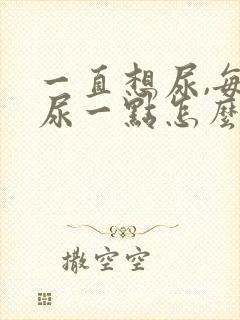 一直想尿,每
尿一點怎麼
撒空空